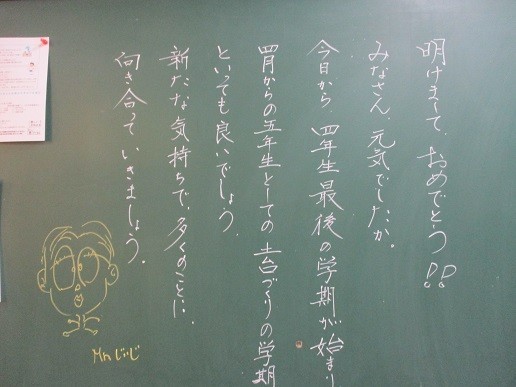 明けまして、おめでとう!!
みなさん、元気でしたか。
今日から 四年生最後の学期が始まり
四月からの五年生としての 土台づくりの学期
といっても良いでしょう。
新たな気持ちで、多くのことに、
向き合って いきましょう。
Mr.じぃじ